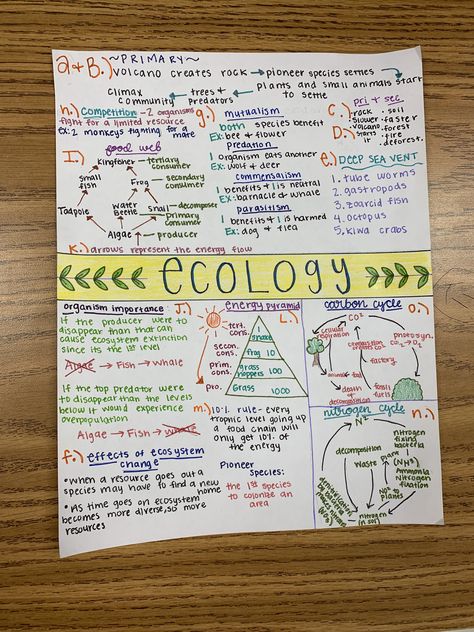 a+B.) ~PRIMARY~
volcano creates rock → pioneer species settles
Climax community ← trees + predators ← plants and small animals start to settle
h.) competition - 2 organisms
fight for a limited resource
EX: 2 monkeys fighting for a mate
g.) mutualism
both species benefit
Ex: bee + flower
predation
1 organism eats another
Ex: wolf + deer
commensalism
1 benefits + 1 is neutral
Ex: barnacle + whale
parasitism
1 benefits + 1 is harmed
Ex: dog + flea
pri + sec
C.) rock · soil
slower · faster
D.) volcano · forest
starts it fire
deforest.
e.) DEEP SEA VENT
1. tube worms
2. gastropods
3. zoarcid fish
4. octopus
5. kiwa crabs
I.) food web
Kingfisher → tertiary consumer
small fish
Frog → secondary consumer
Tadpole
water Beetle
Snail → decompose
primary consumer
Algae → producer
K.) arrows represent the energy flow
ecology
organism importance J.)
If the producer were to
disappear than that can
cause ecosystem extinction
since its the 1st level
Algae → Fish → whale
If the top predator were
to disappear than the levels
below it would experience
overpopulation
Algae → Fish → whale
f.) effects of ecosystem
change
• when a resource goes out a
species may have to find a new
home
• As time goes on ecosystem
becomes more diverse, so more
resources
energy pyramid
L.)
tert. cons. 1 snake
secon. cons. frog 10
prim. cons. grass hoppers 100
pro. Grass 1000
m.) 10% rule - every
trophic level going up
a food chain will
only get 10% of
the energy
Pioneer
Species:
the 1st species
to colonize an
area
carbon cycle
O.)
CO²
cellular respiration
combustion creates CO²
photosyn.
CO₂ → O₂
factory
animal
death + decomposition
fossil fuels
nitrogen cycle n.)
N²
nitrogen fixing bacteria
decomposition
(NH³)
Ammonia
Nitrogen fixation
waste
plane
plants
nitrogen
(in soil)